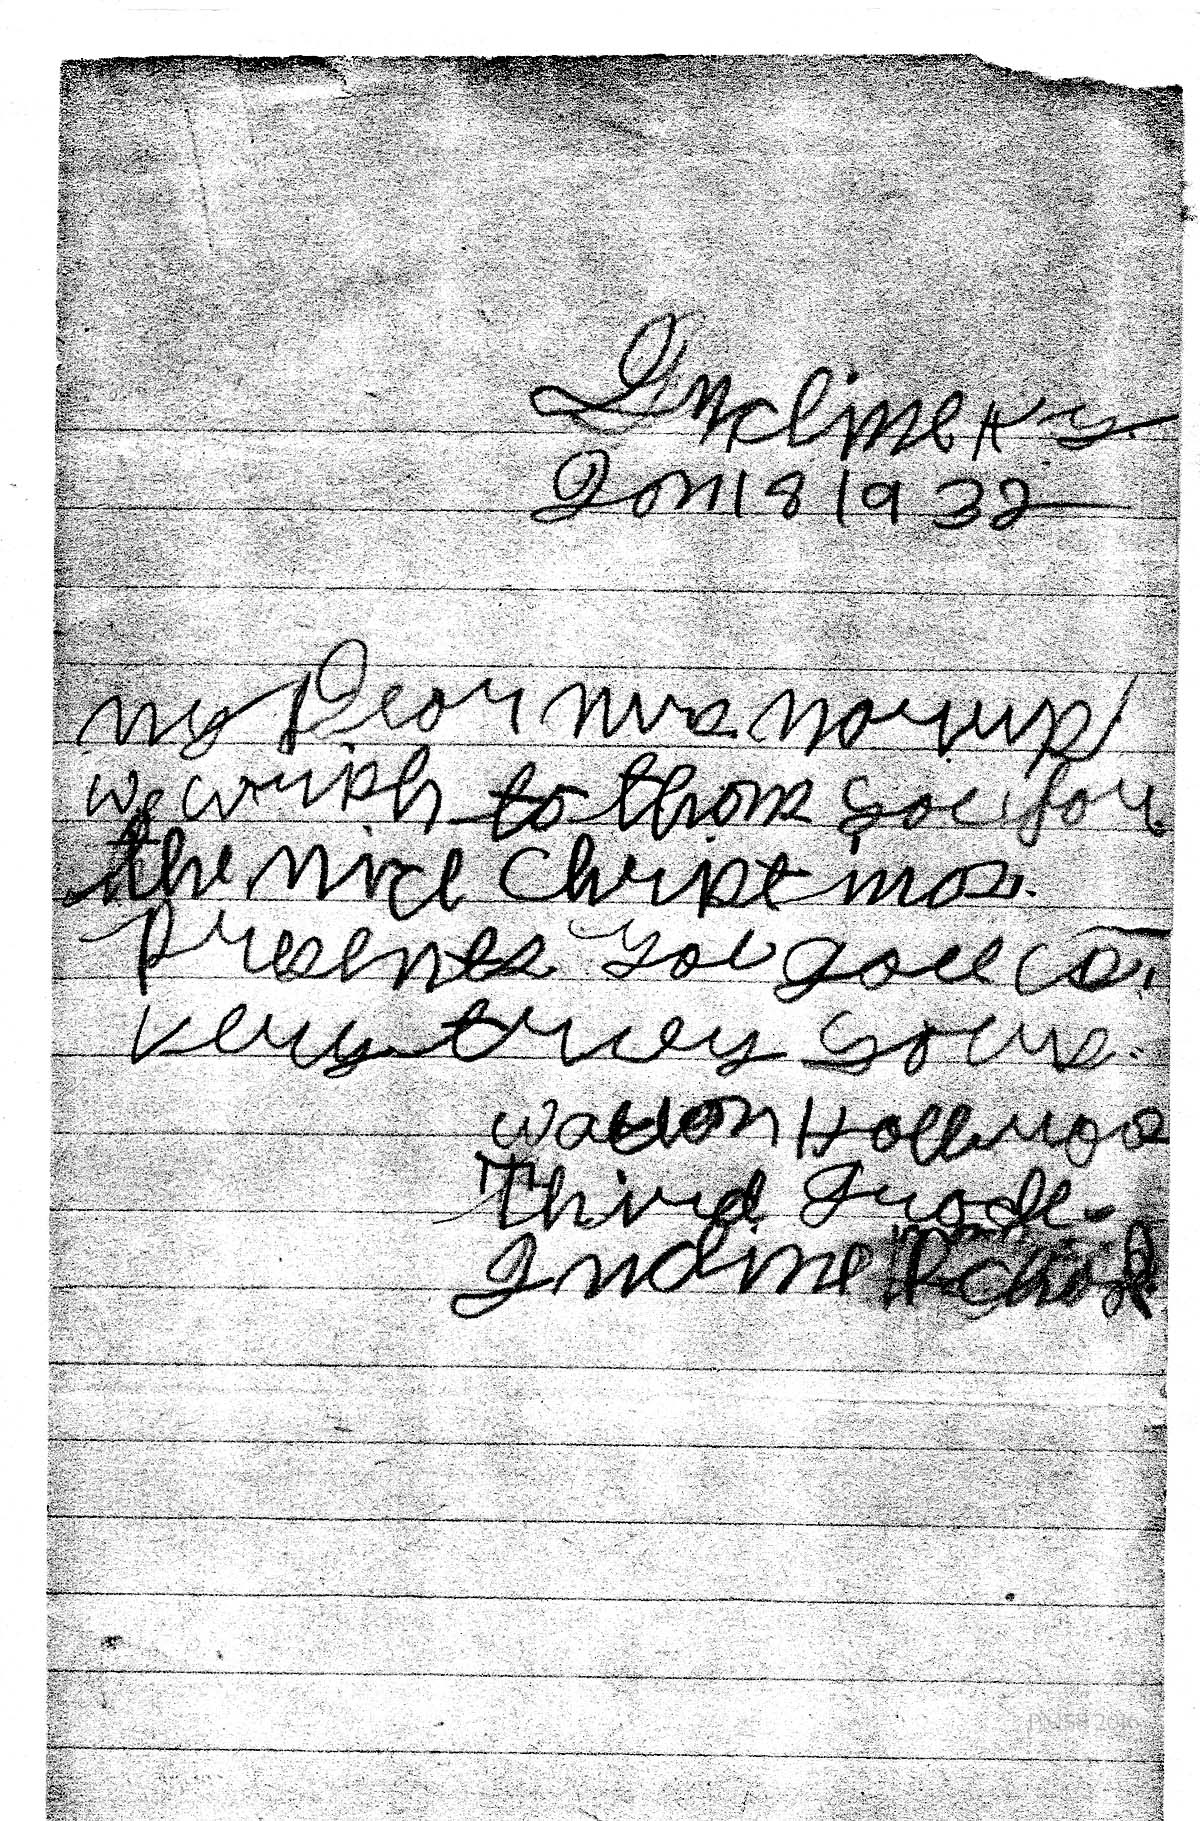 Incline Ky.
Jan 18 1932
My Dear Mrs. Norup
we wrish to thank you for
the nice Christmas.
Presents you gave us.
very truey yours.
Third Grade.
Incline School
PMSS 2016